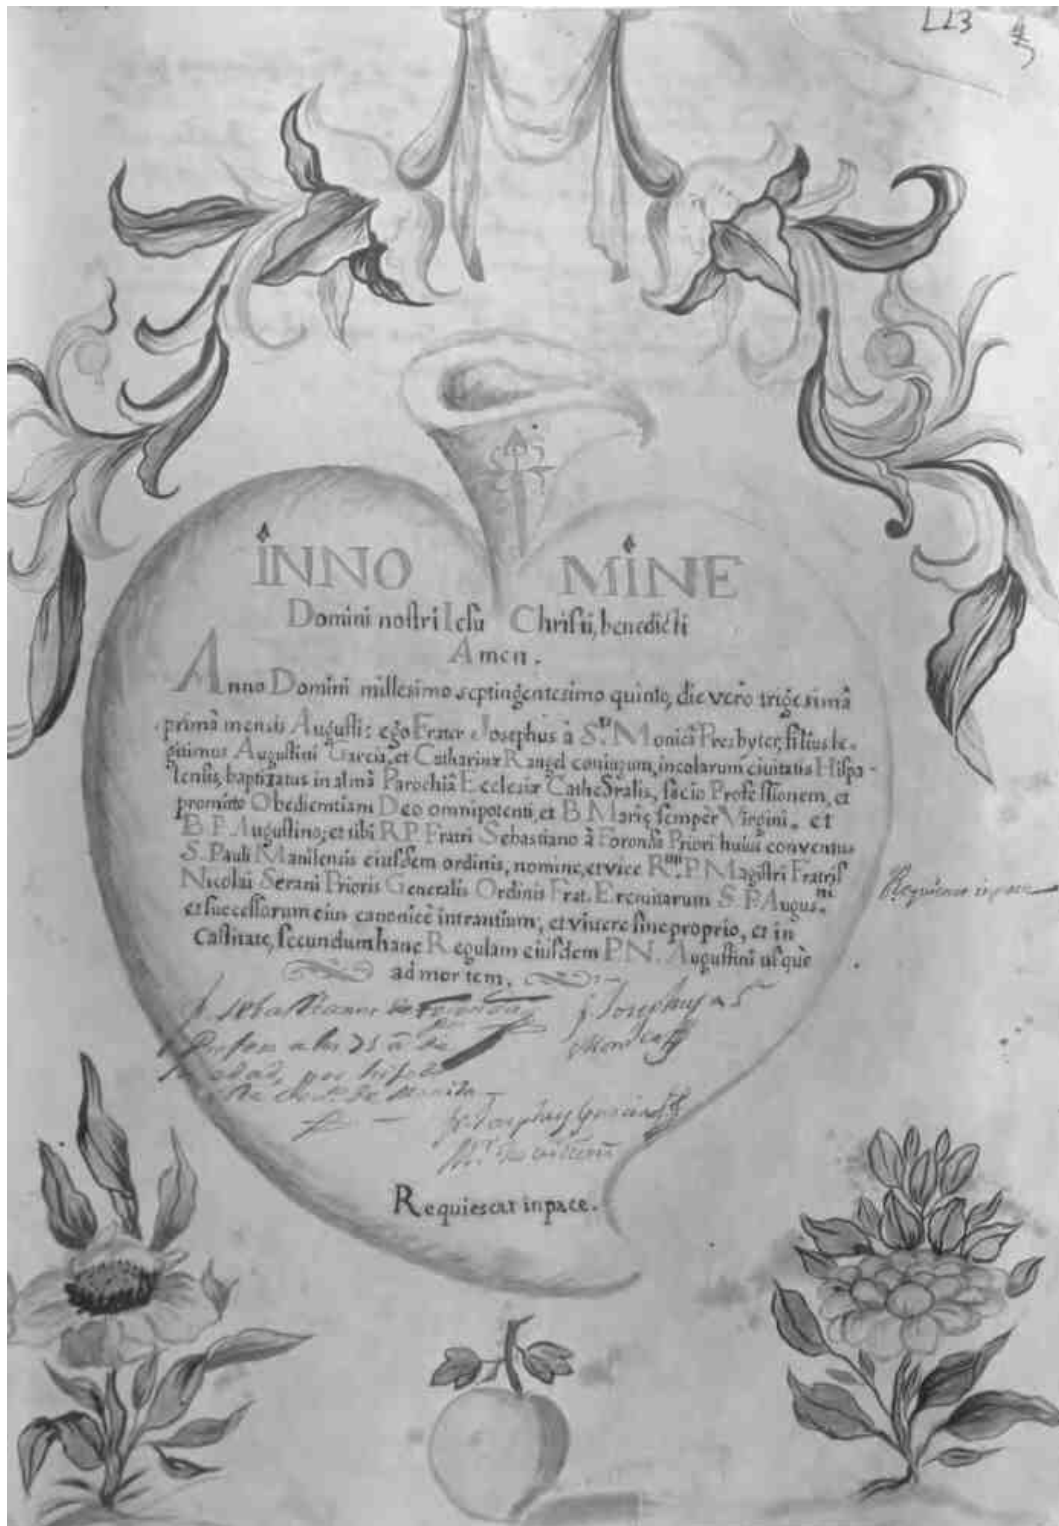 LL3
INNO MINE
Domini nostri Iesu Christi, benedicti
Amen.
Anno Domini millesimo septingentesimo quinto, die verò trigesimâ
primâ mensis Augusti: ego Frater Josephus à S.ta Monicâ Presbyter, filius le-
gitimus Augustini Garcia, et Catharinæ Rangel coniugum, incolarum ciuitatis Hispa-
lensis, baptizatus in almâ Parochiâ Ecclesiæ Cathedralis, facio Professionem, et
promitto Obedientiam Deo omnipotenti, et B. Marię semper Virgini. et
B. P. Augustino; et tibi R. P. Fratri Sebastiano à Foronda Priori huius conventus
S. Pauli Manilensis eiusdem ordinis, nomine, et vice R.mi P. Magistri Fratris
Nicolai Serani Prioris Generalis Ordinis Frat. Eremitarum S. P. Augus.ni
et successorum eius canonicè intrantium; et viuere sine proprio, et in
Castitate, secundum hanc Regulam eiusdem P. N. Augustini usquè
ad mortem.
f. Sebastianus de Foronda
f. Josephus a S.
Monica
Requiescat in pace
Requiescat in pace.